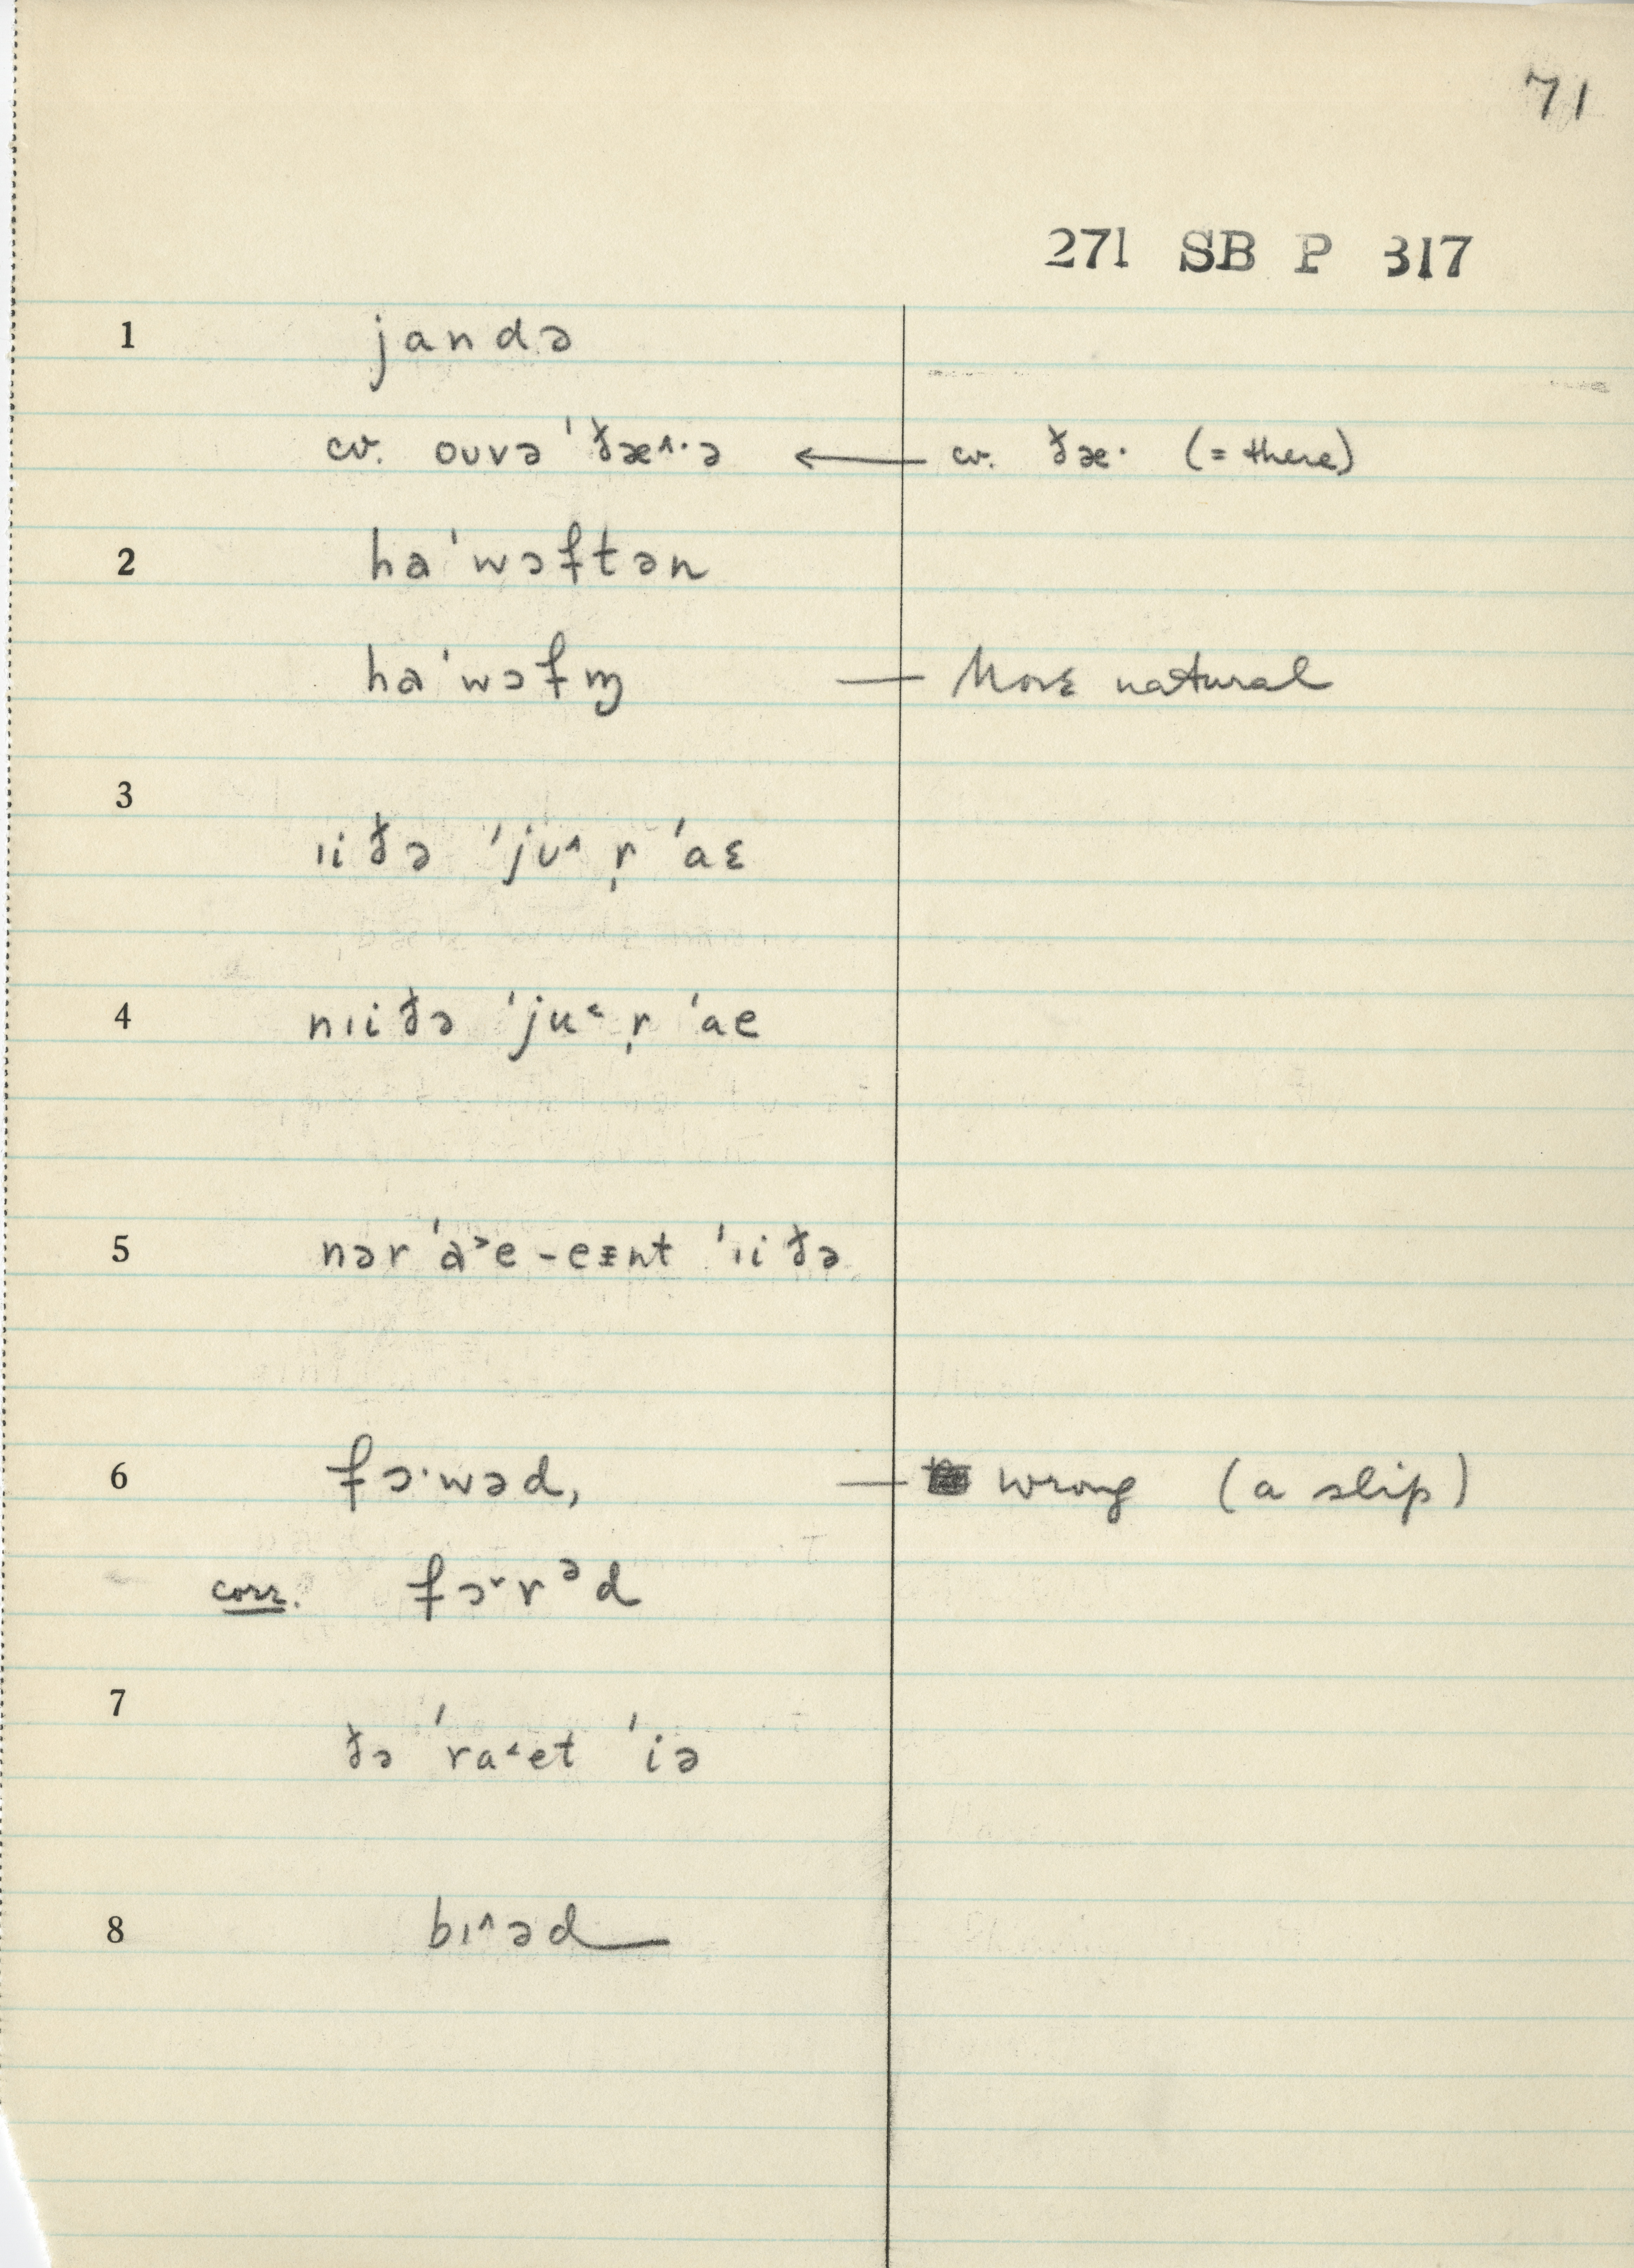 71
271 SB P 317
1 jandə
cv. ouvə ˈðæ^·ə ← cv. ðæ· (= there)
2 haˈwəftən
haˈwəfɱ — More natural
3 ɪiðə ˈjʊ^ r̩ ˈaɛ
4 nɪiðə ˈju˂ r̩ ˈae
5 nərˈɑ˃e-eɪnt ˈɪiðə
6 fɔ·wəd, — wrong (a slip)
corr. fɔ˅rᵊd
7 ðə ˈra˂et ˈiə
8 bɪ^əd